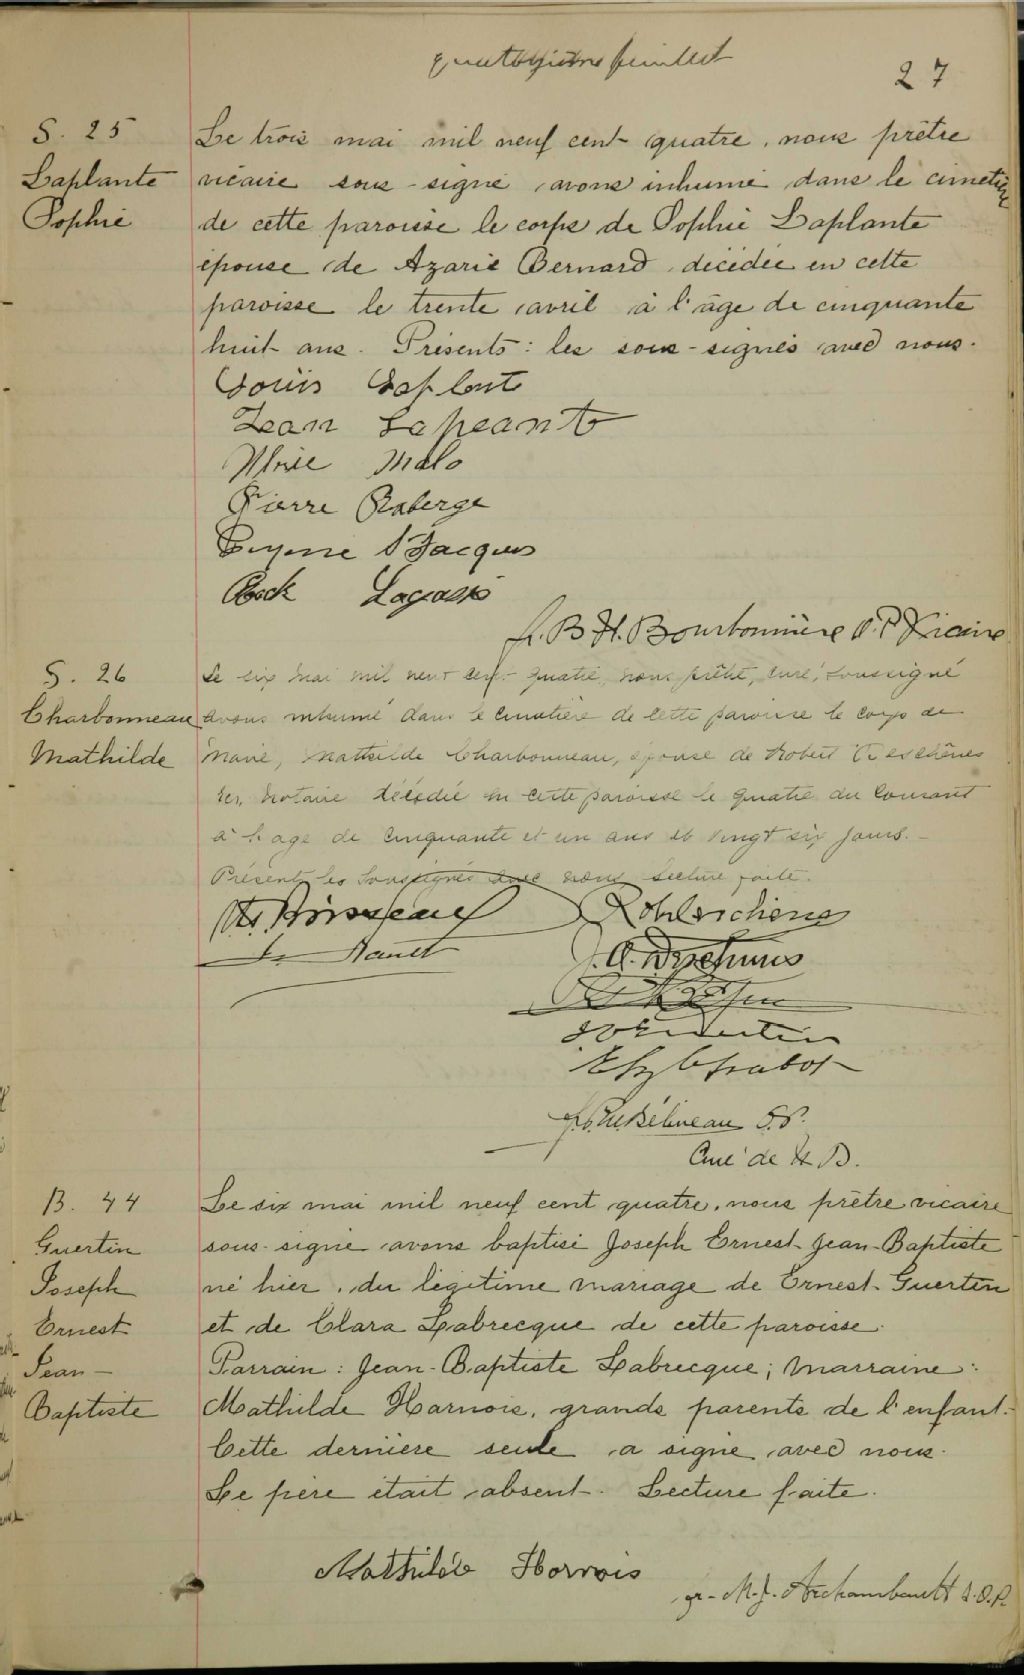 quatorzième feuillet
27
S. 25
Laplante
Sophie
Le trois mai mil neuf cent quatre, nous prêtre
vicaire sous-signé avons inhumé dans le cimetière
de cette paroisse le corps de Sophie Laplante
épouse de Azarie Bernard, décédée en cette
paroisse le trente avril à l'âge de cinquante
huit ans. Présents: les sous-signés avec nous.
Louis Laplante
Jean Lapeante
Malo
Pierre Roberge
Eugene St Jacques
Rock Lagassé
B H. Bourbonnière O.P Vicaire
S. 26
Charbonneau
Mathilde
Le six mai mil neuf cent quatre, nous prêtre, curé, soussigné
avons inhumé dans le cimetière de cette paroisse le corps de
Marie, Mathilde Charbonneau, épouse de Robert Deschênes
Notaire décédée en cette paroisse le quatre du courant
à l'age de cinquante et un ans et vingt six jours.
Présents les soussignés avec nous lecture faite.
J. Bélineau
Curé de N. D.
B. 44
Guertin
Joseph
Ernest
Jean-
Baptiste
Le six mai mil neuf cent quatre, nous prêtre vicaire
sous-signé avons baptisé Joseph Ernest-Jean-Baptiste
né hier, du légitime mariage de Ernest Guertin
et de Clara Labrecque de cette paroisse.
Parrain: Jean-Baptiste Labrecque; marraine:
Mathilde Harnois, grands parents de l'enfant.
Cette dernière seule a signé avec nous.
Le père était absent. Lecture faite.
Mathilde Hornois
fr. M. J. Archambault